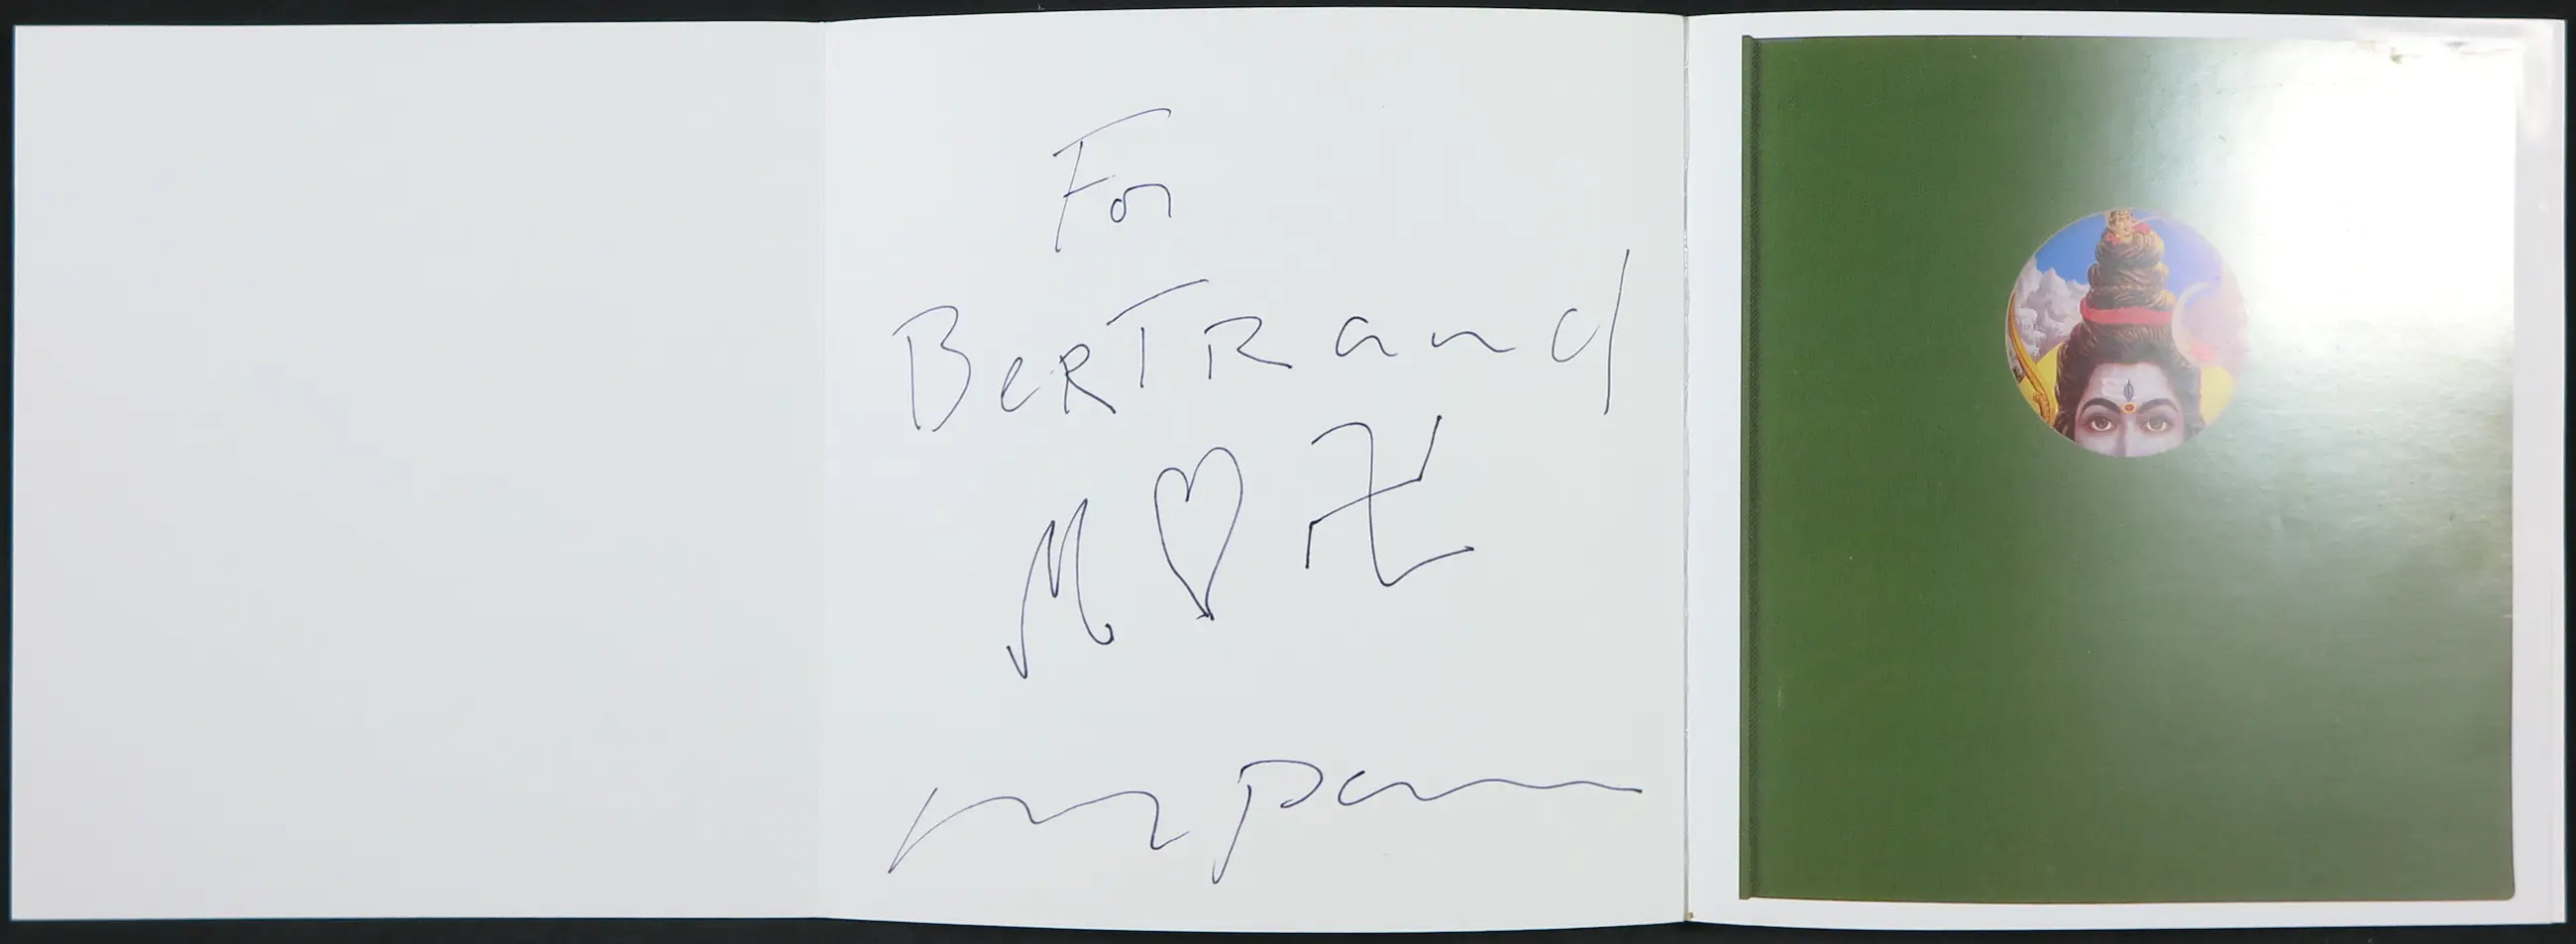 For
BerTRand
M ♡ 卍